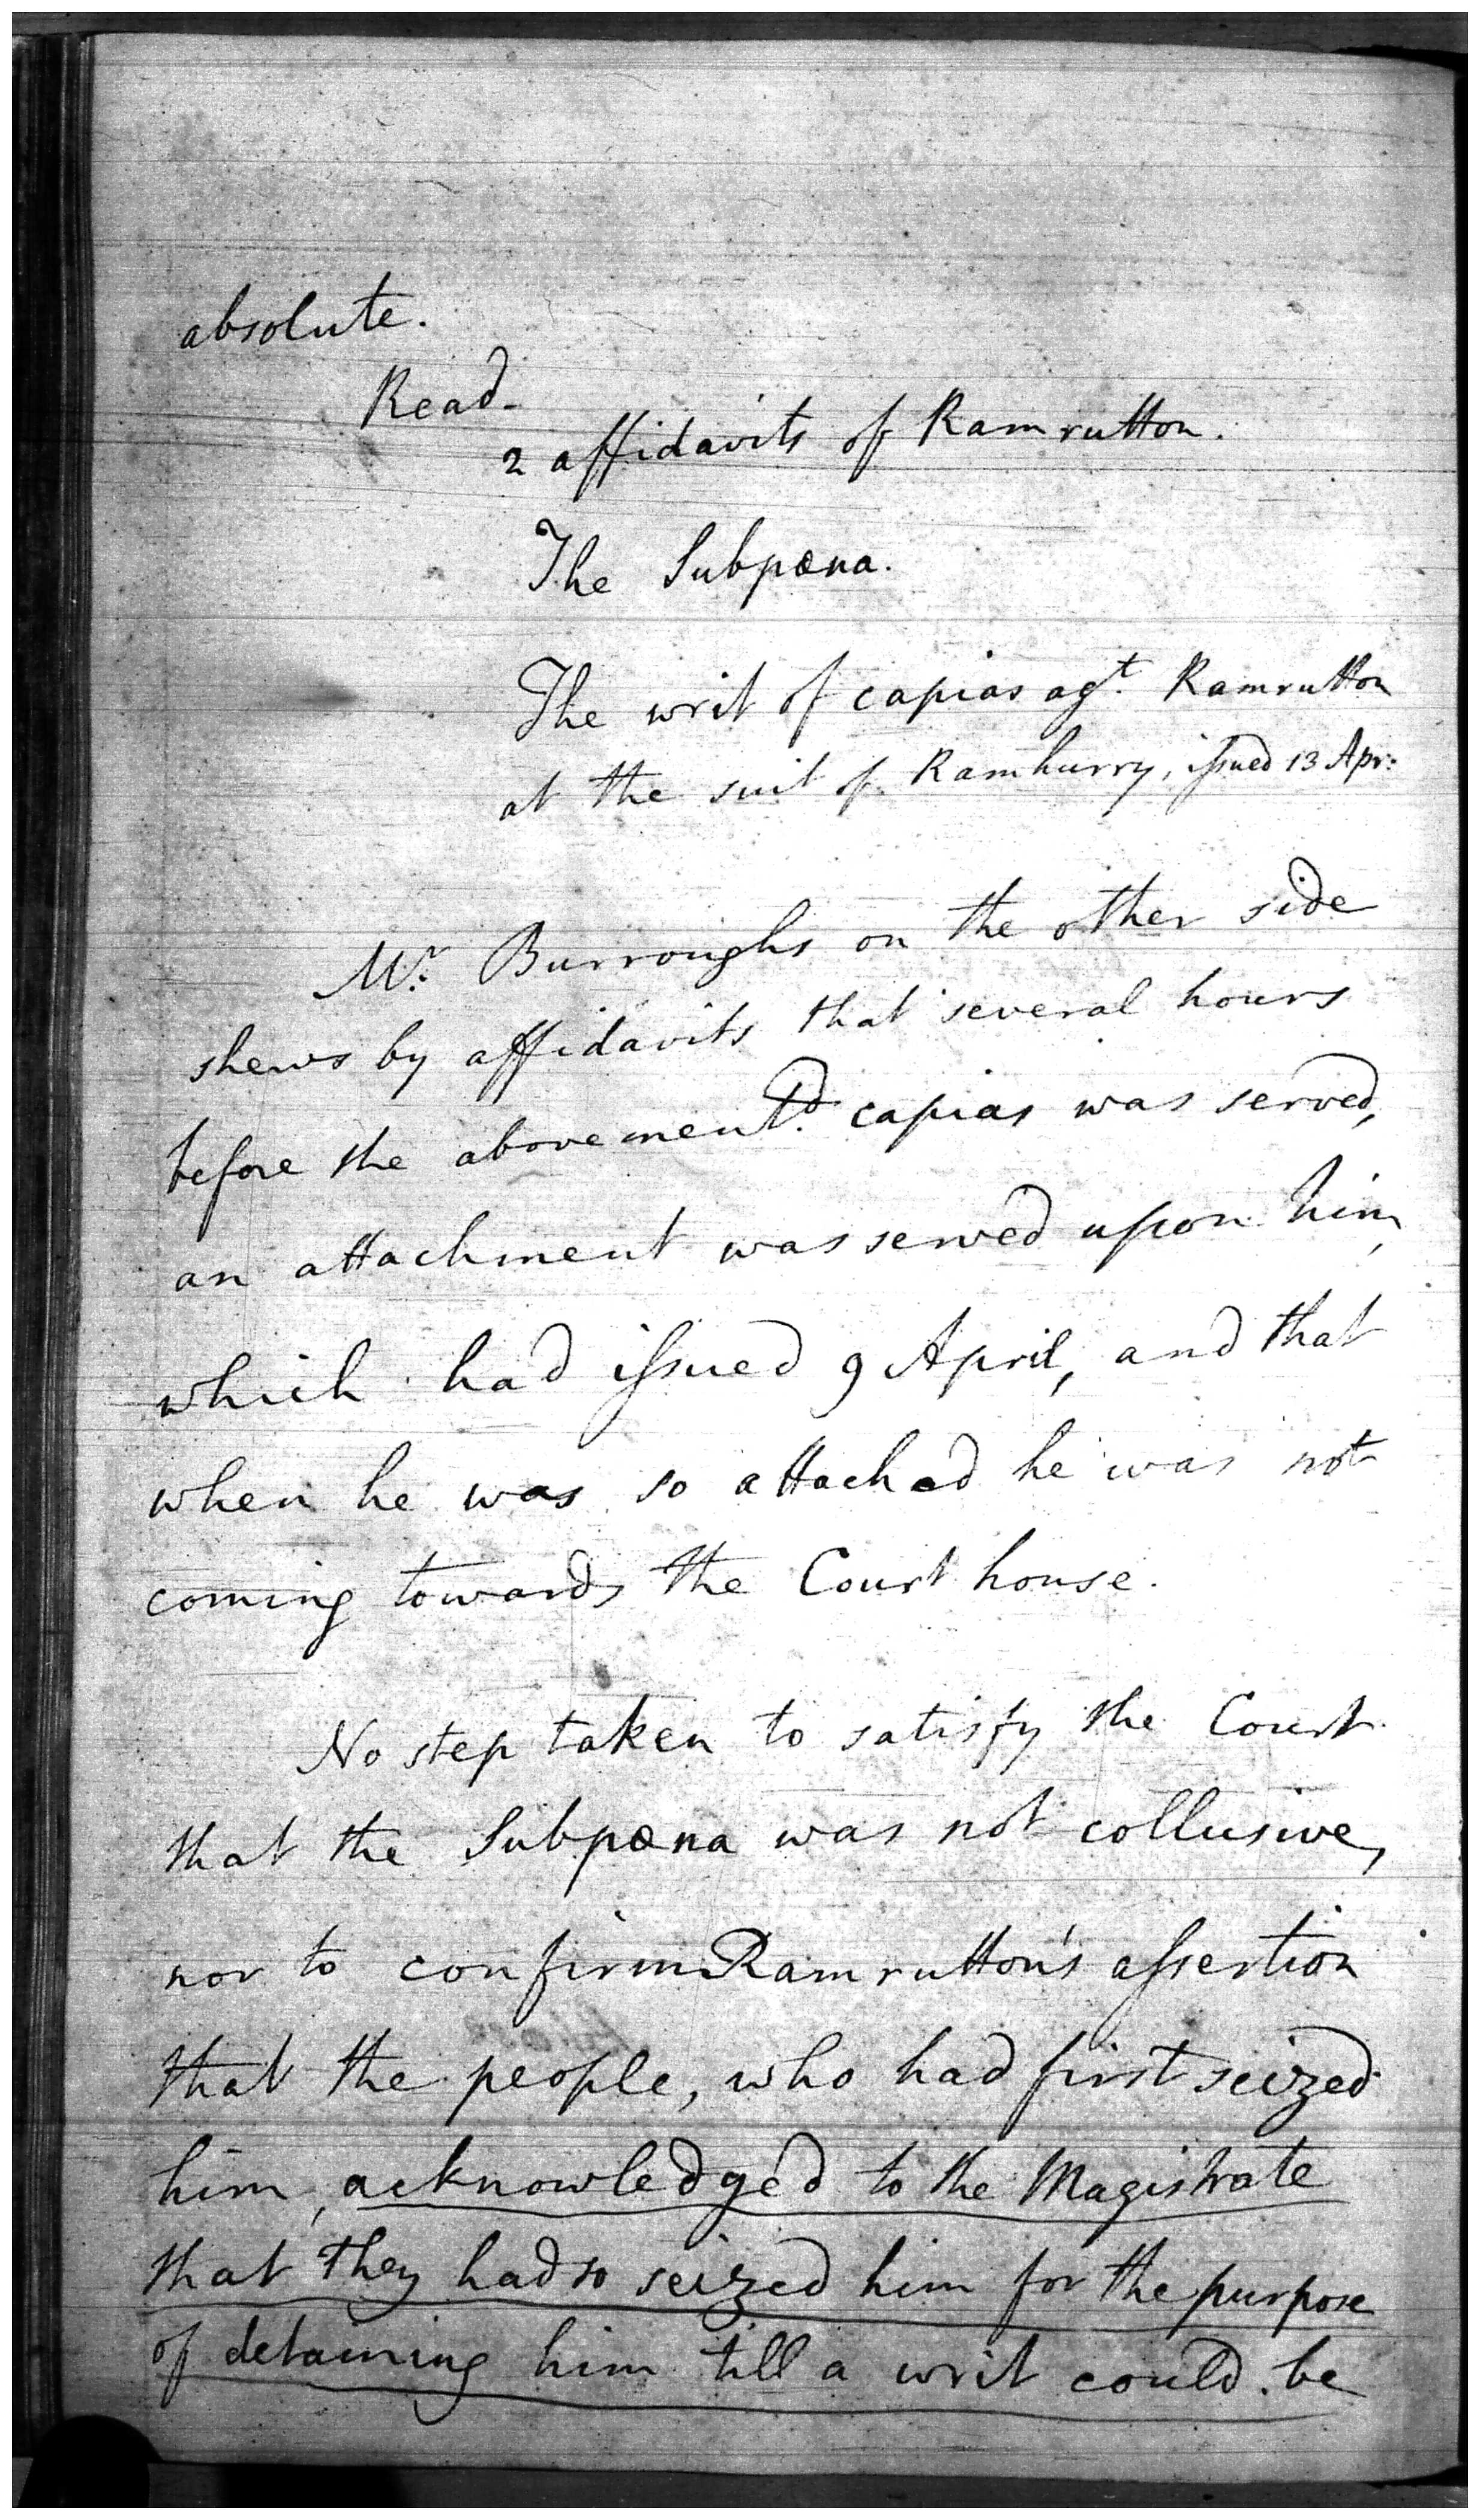 absolute.
Read -
2 affidavits of Ramrutton.
The Subpœna.
The writ of capias agt. Ramrutton
at the suit of Ramhurry, issued 13 Apr:
Mr. Burroughs on the other side
shews by affidavits that several hours
before the abovementd. capias was served,
an attachment was served upon him,
which had issued 9 April, and that
when he was so attached he was not
coming towards the Court house.
No step taken to satisfy the Court
that the Subpœna was not collusive,
nor to confirm Ramrutton's assertion
that the people, who had first seized
him, acknowledged to the Magistrate
that they had so seized him for the purpose
of detaining him till a writ could be